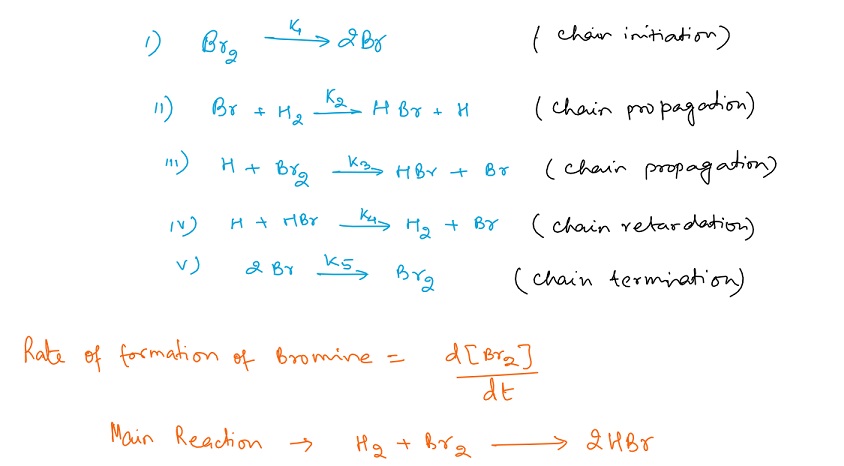 i) Br2 K1→ 2Br (chain initiation)
ii) Br + H2 K2→ HBr + H (chain propagation)
iii) H + Br2 K3→ HBr + Br (chain propagation)
iv) H + HBr K4→ H2 + Br (chain retardation)
v) 2Br K5→ Br2 (chain termination)
Rate of formation of Bromine = d[Br2]/dt
Main Reaction → H2 + Br2 → 2HBr